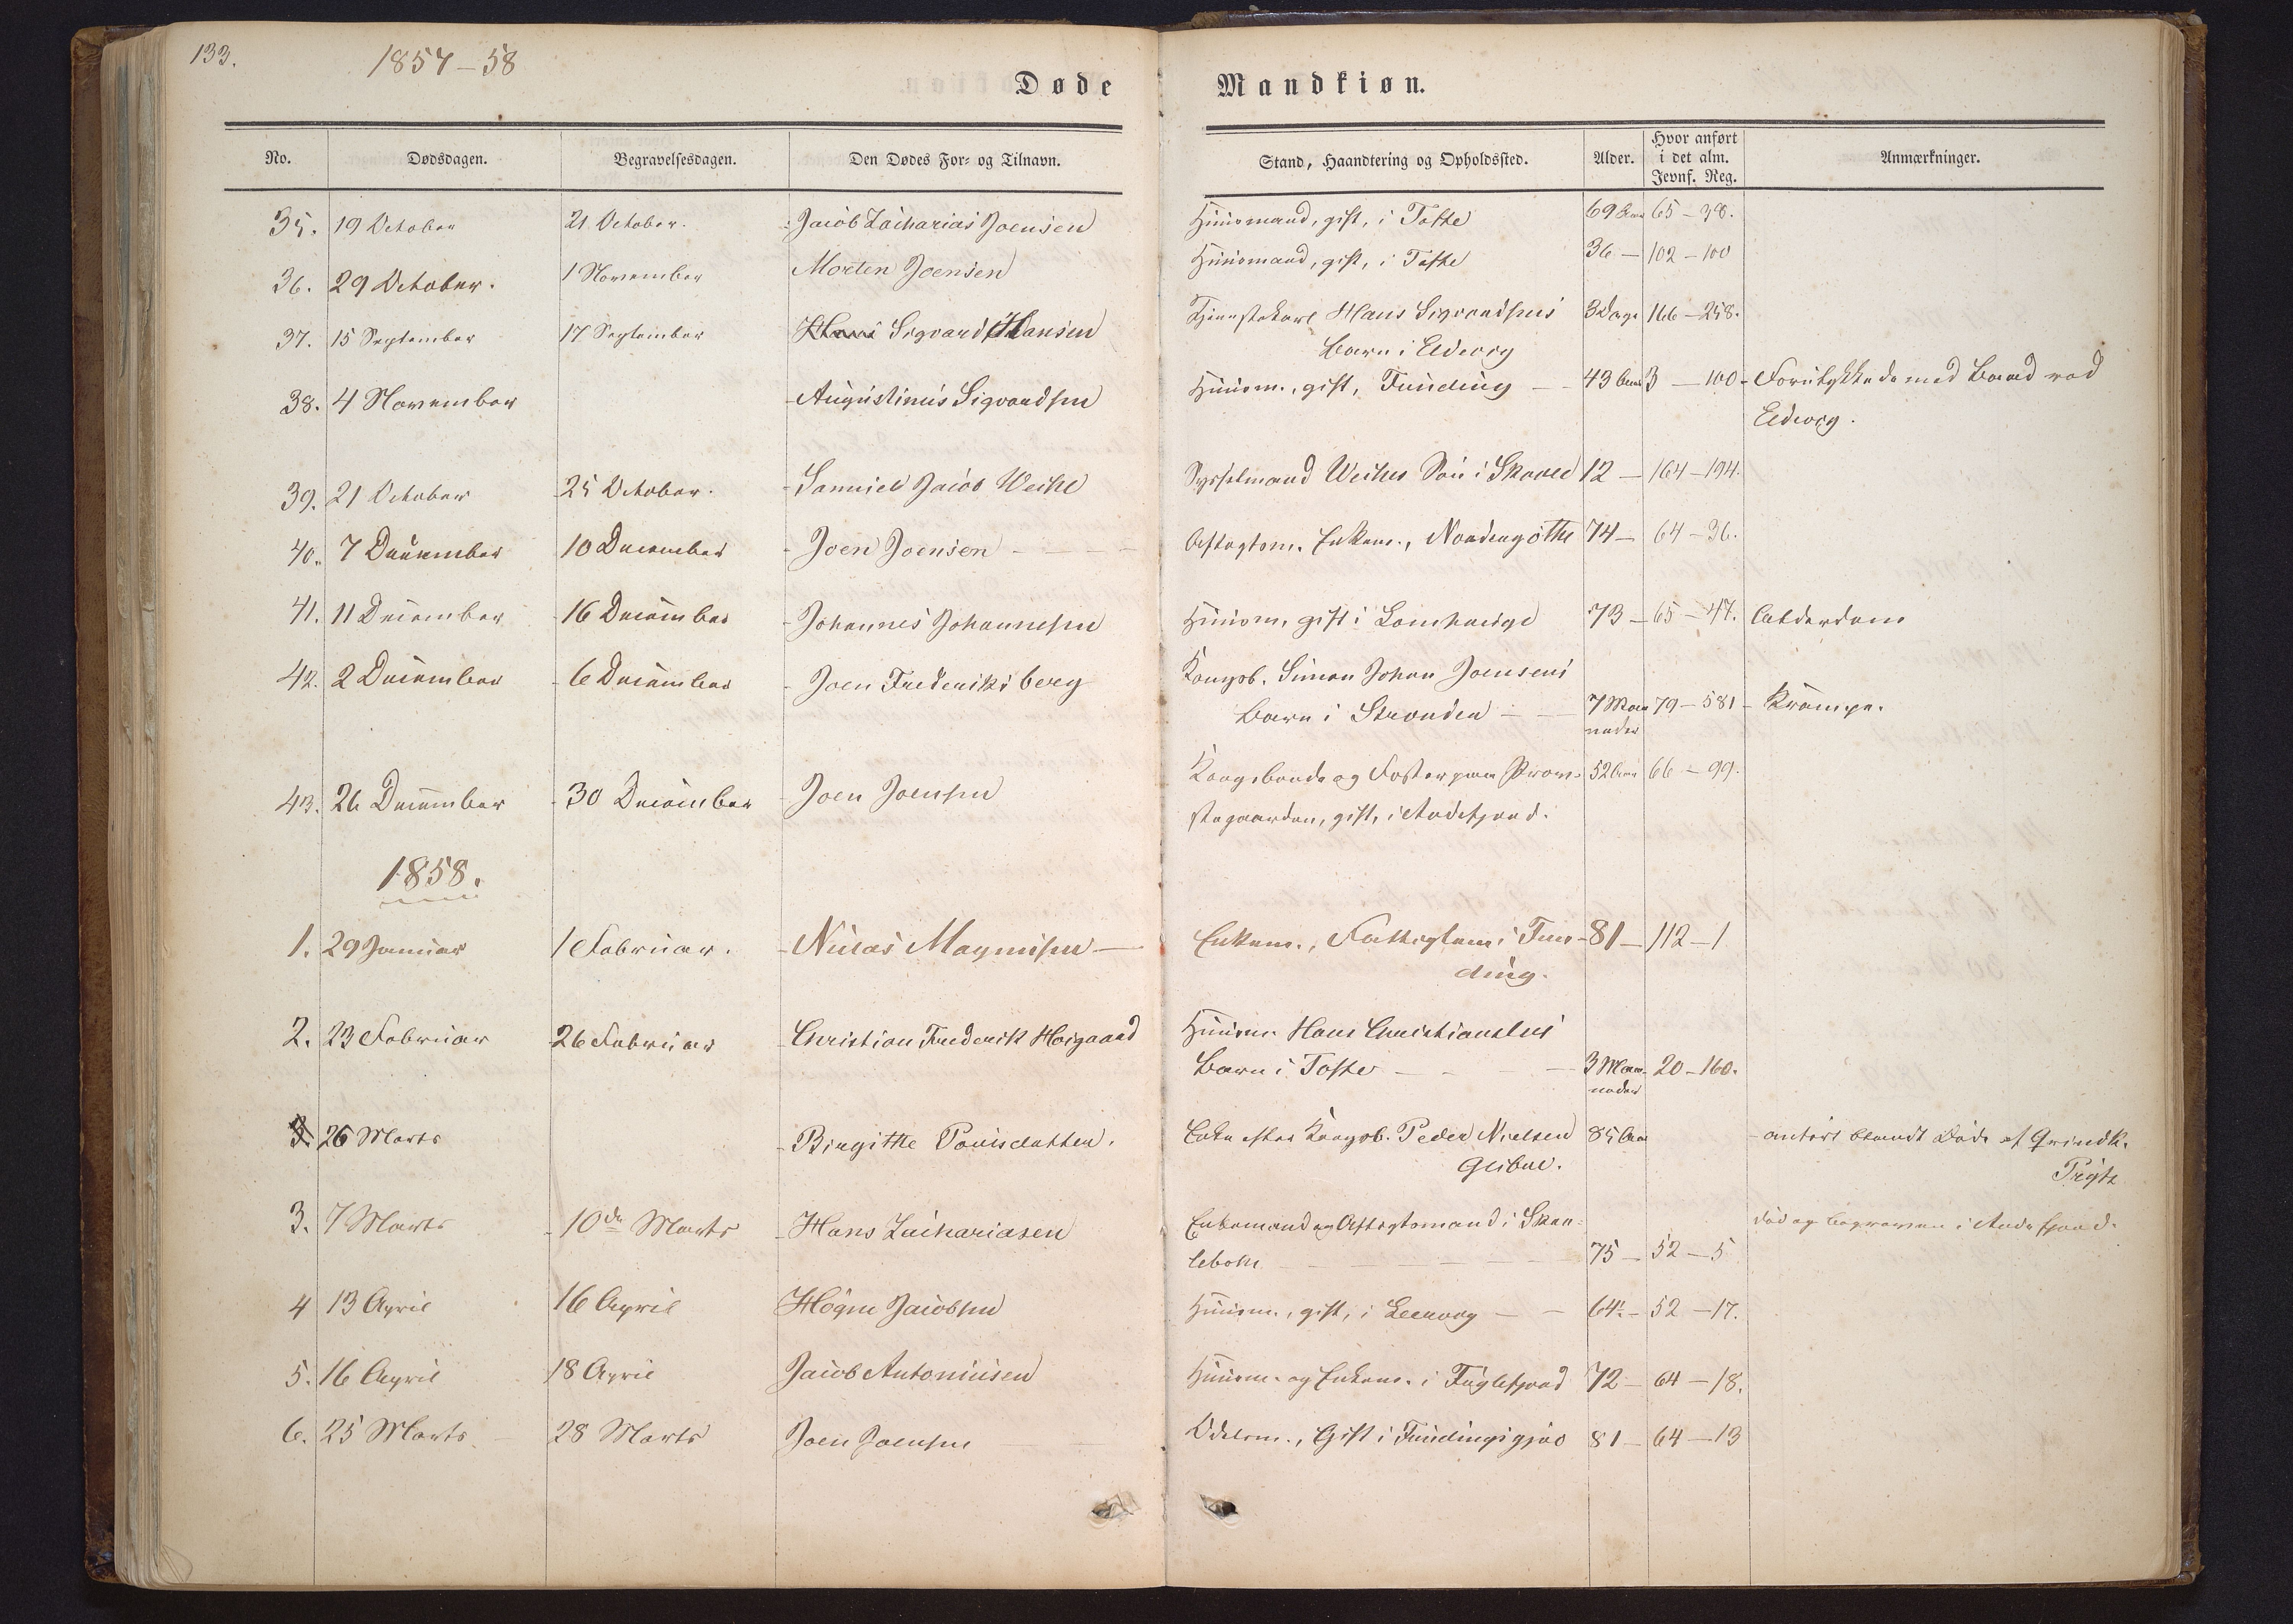 133.
1857-58
Døde Mandkiøn.
No. Dødsdagen. Begravelsesdagen. Den Dødes For- og Tilnavn. Stand, Haandtering og Opholdssted. Alder. Hvor anført i det alm. Jevnf. Reg. Anmærkninger.
35. 19 October 21 October. Jacob Zacharias Joensen Huusmand, gift, i Tofte 69 Aar 65-38.
36. 29 October. 1 November Morten Joensen Huusmand, gift, i Tofte 36 — 102-100
37. 15 September 17 September Hans Sigvard Hansen Tjenestekarl Hans Sigvardsens 3 Dage 166-258.
Barn i Eldevig
38. 4 November Augustinus Sigvardsen Huusm., gift, Funding — 43 Aar 3-100 - Forulykkede med Baad ved
Eldevig.
39. 21 October 25 October. Samuel Jacob Weihe Sysselmand Weihes Søn i Skaale 12 — 164-194.
40. 7 December 10 December Joen Joensen Aftægtsm. Enkem., Nordregøthe 74 — 64-36.
41. 11 December 16 December Johannes Johannesen Huusm, gift i Lamhauge 73 — 65-47. Alderdom
42. 2 December 6 December Joen Frederiksberg Kongsb. Simon Johan Joensens
Barn i Strænden — 7 Maa 79-581 - Krampe.
neder
43. 26 December 30 December Joen Joensen Kongsbonde og Fæster paa Præ- 52 Aar 66-99.
stegaarden, gift, i Andefjord.
1858.
1. 29 Januar 1 Februar. Niclas Magnusen — Enkem., Fattiglem i Fun- 81 — 112-1
ding.
2. 23 Februar 26 Februar Christian Frederik Høigaard Huusm. Hans Christiansens
Barn i Tofte — 3 Maa- 20-160.
neder
3. 26 Marts Birgithe Poulsdatter. Enke efter Kongsb. Peder Nielsen 85 Aar - anført blandt Døde af Qvindk.
Glibre. Prytz
3. 7 Marts 10de Marts Hans Zachariasen Enkemand og Aftægtsmand i Skaa- død og begraven i Andefjord.
lebotn — 75 — 52-5
4 13 April 16 April Høgne Jacobsen Huusm., gift, i Leervig — 64 — 52-17.
5. 16 April 18 April Jacob Antoniusen Huusm. og Enkem. i Fuglefjord 72 — 64-18.
6. 25 Marts 28 Marts Joen Joensen Odelsm., Gift i Fundingsgjov 81 — 64-13